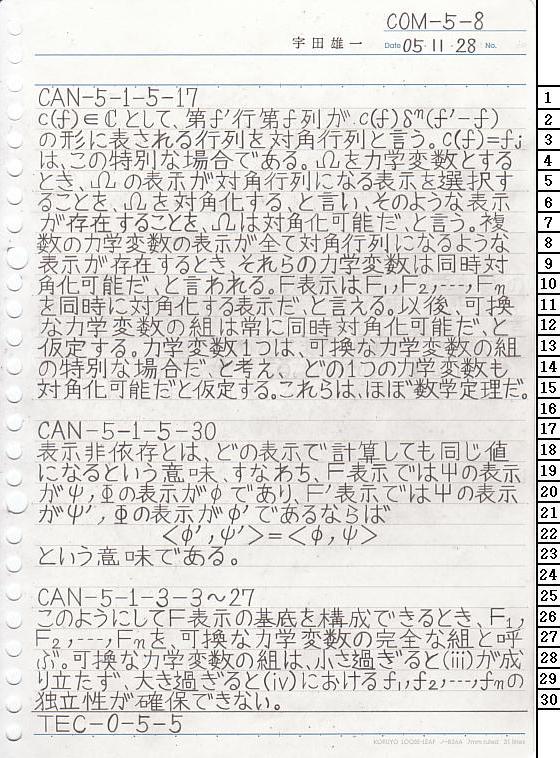 COM-5-8
宇田雄一 Date 05・11・28 No.
CAN-5-1-5-17
c(f)∈ℂとして、第f'行第f列がc(f)δⁿ(f'-f)
の形に表される行列を対角行列と言う。c(f)=fj
は、この特別な場合である。Ωを力学変数とする
とき、Ωの表示が対角行列になる表示を選択す
ることを、Ωを対角化する、と言い、そのような表示
が存在することを、Ωは対角化可能だ、と言う。複
数の力学変数の表示が全て対角行列になるような
表示が存在するとき、それらの力学変数は同時対
角化可能だ、と言われる。F表示はF₁,F₂,---,Fn
を同時に対角化する表示だ、と言える。以後、可換
な力学変数の組は常に同時対角化可能だ、と
仮定する。力学変数1つは、可換な力学変数の組
の特別な場合だ、と考え、どの1つの力学変数も
対角化可能だと仮定する。これらは、ほぼ数学定理だ。
CAN-5-1-5-30
表示非依存とは、どの表示で計算しても同じ値
になるという意味、すなわち、F表示ではΨの表示
がψ,Φの表示がφであり、F'表示ではΨの表示
がψ',Φの表示がφ'であるならば
<φ',ψ'>=<φ,ψ>
という意味である。
CAN-5-1-3-3~27
このようにしてF表示の基底を構成できるとき、F₁,
F₂,---,Fnを、可換な力学変数の完全な組と呼
ぶ。可換な力学変数の組は、小さ過ぎると(iii)が成
り立たず、大き過ぎると(iv)におけるf₁,f₂,---,fnの
独立性が確保できない。
TEC-0-5-5
KOKUYO LOOSE-LEAF ノ-836A 7mm ruled 31 lines
1
2
3
4
5
6
7
8
9
10
11
12
13
14
15
16
17
18
19
20
21
22
23
24
25
26
27
28
29
30